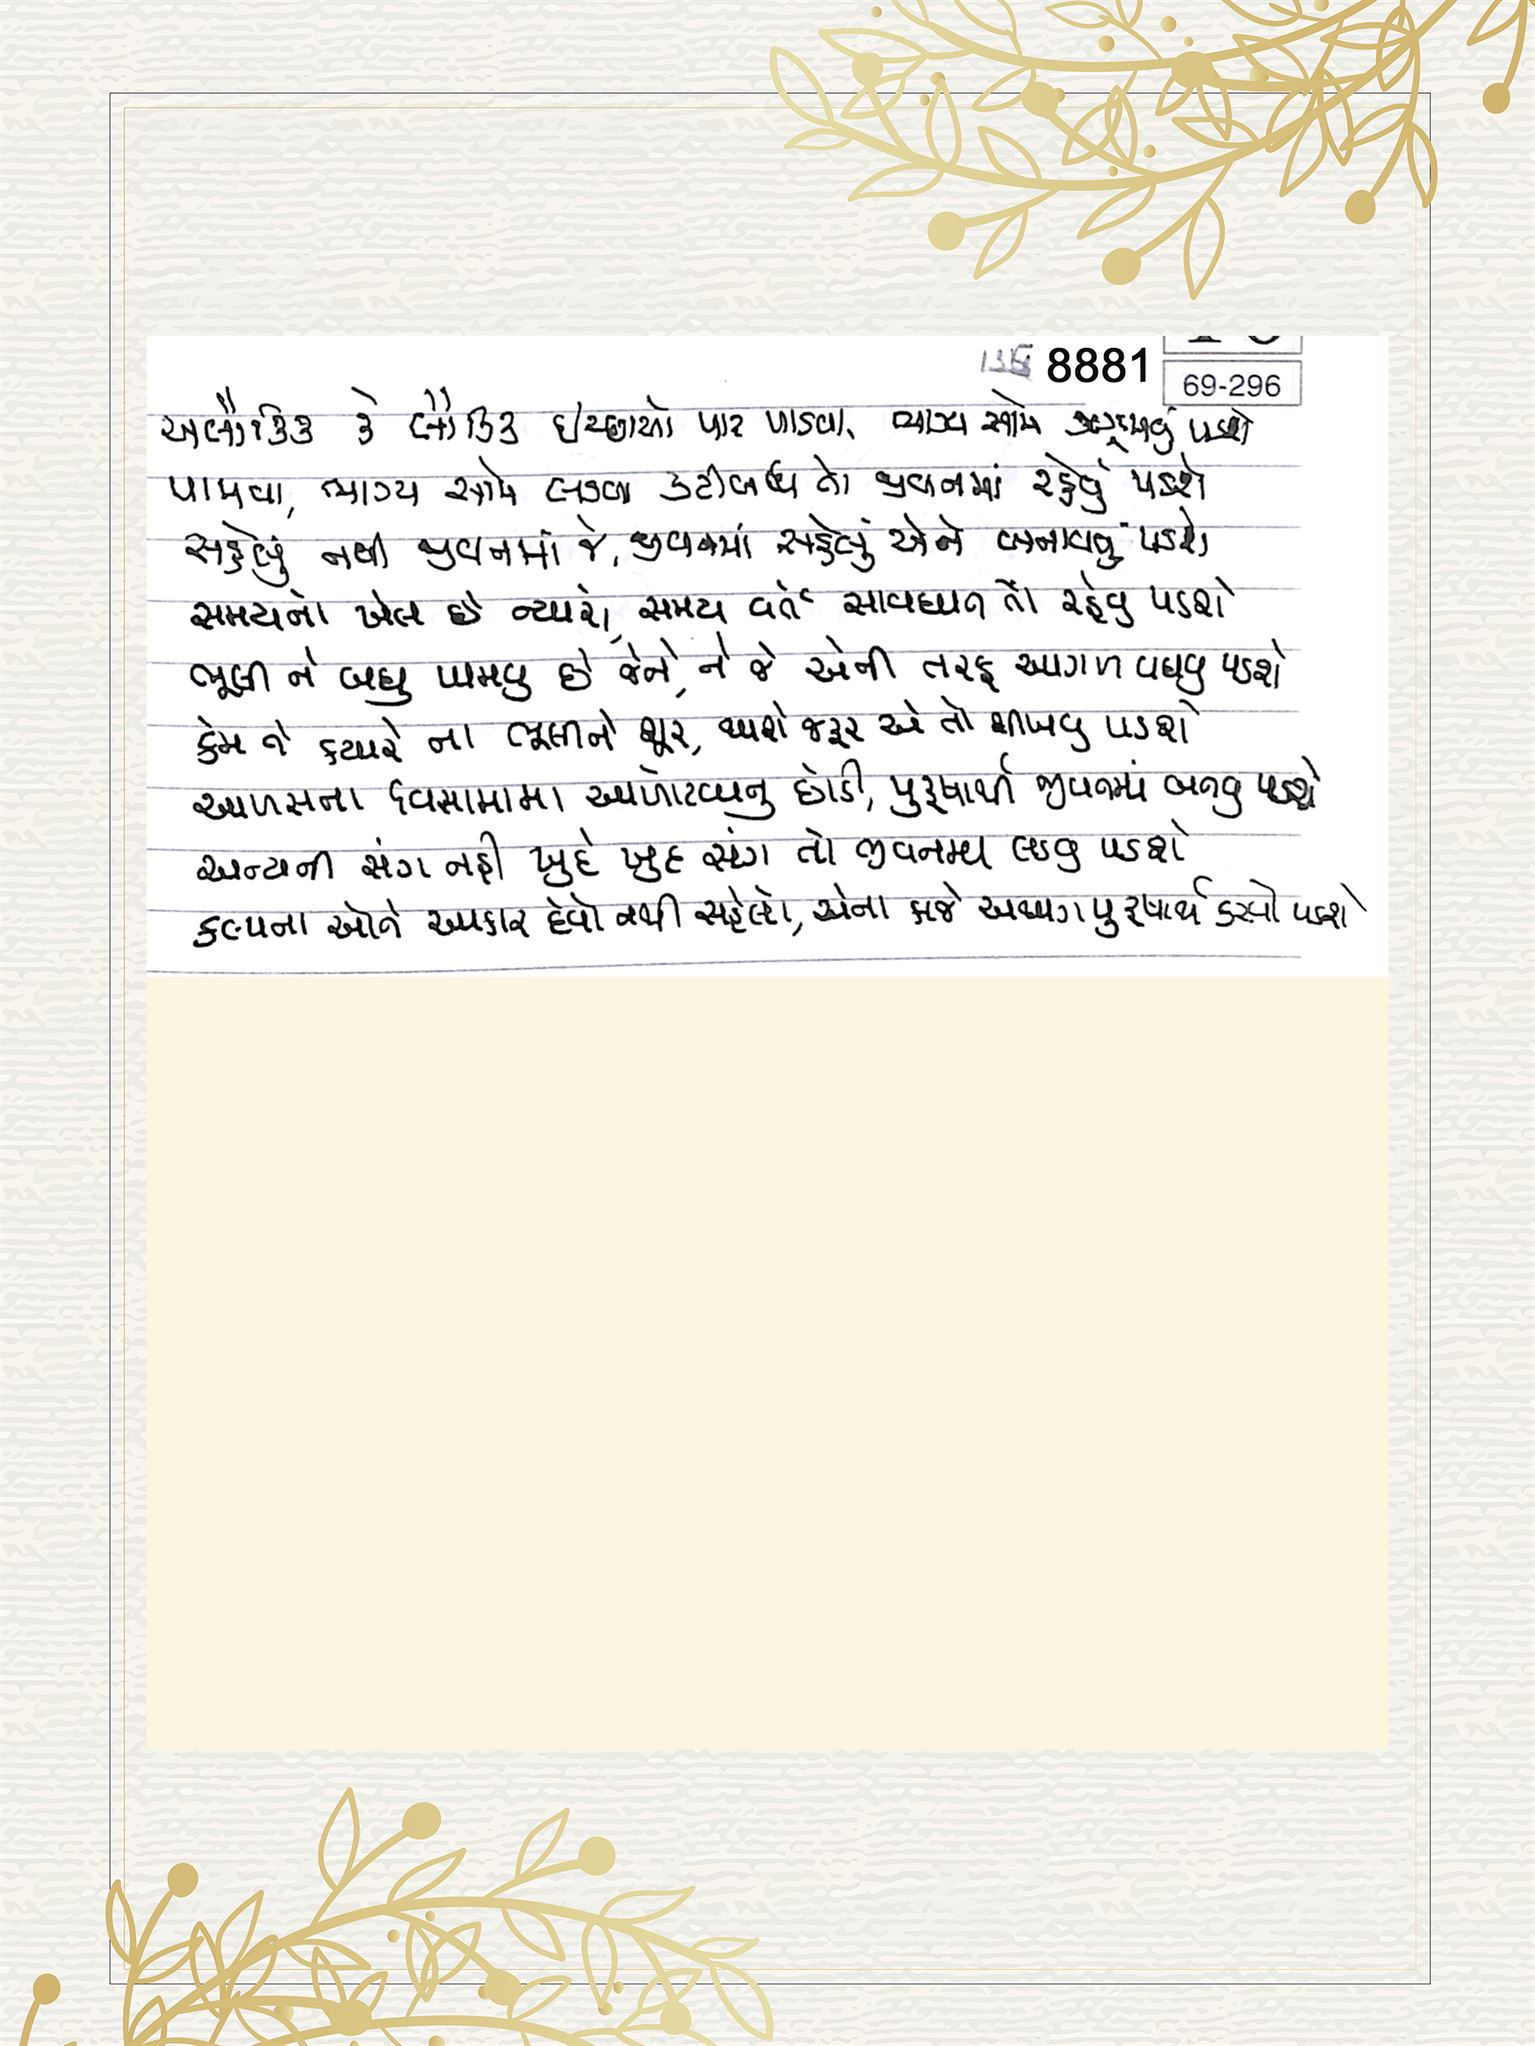 8881
69-296
અલૌકિક કે લૌકિક ઇચ્છાઓ પાર પાડવા, ભાગ્ય સામે ઝઝૂમવું પડશે
પામવા, ભાગ્ય સામે લડવા કટીબધ્ધ તો જીવનમાં રહેવું પડશે
સહેલું નથી જીવનમાં જે, જીવનમાં સહેલું એને બનાવવું પડશે
સમયનો ખેલ છે ન્યારો, સમય વર્તે સાવધાન તો રહેવુ પડશે
ભૂલી ને બધુ પામવુ છે જેને, ને જે એની તરફ આગળ વધવુ પડશે
કેમ ને ક્યારે ના ભૂલીને શૂર, થાશે જરૂર એ તો શીખવુ પડશે
આળસના દિવસામામા આળોટવાનુ છોડી, પુરૂષાર્થી જીવનમાં બનવુ પડશે
અન્યની સંગ નહી ખુદે ખુદ સંગ તો જીવનમા લડવુ પડશે
કલ્પના ઓને આકાર દેવો નથી સહેલો, એના કાજે અથાગ પુરૂષાર્થ કરવો પડશે